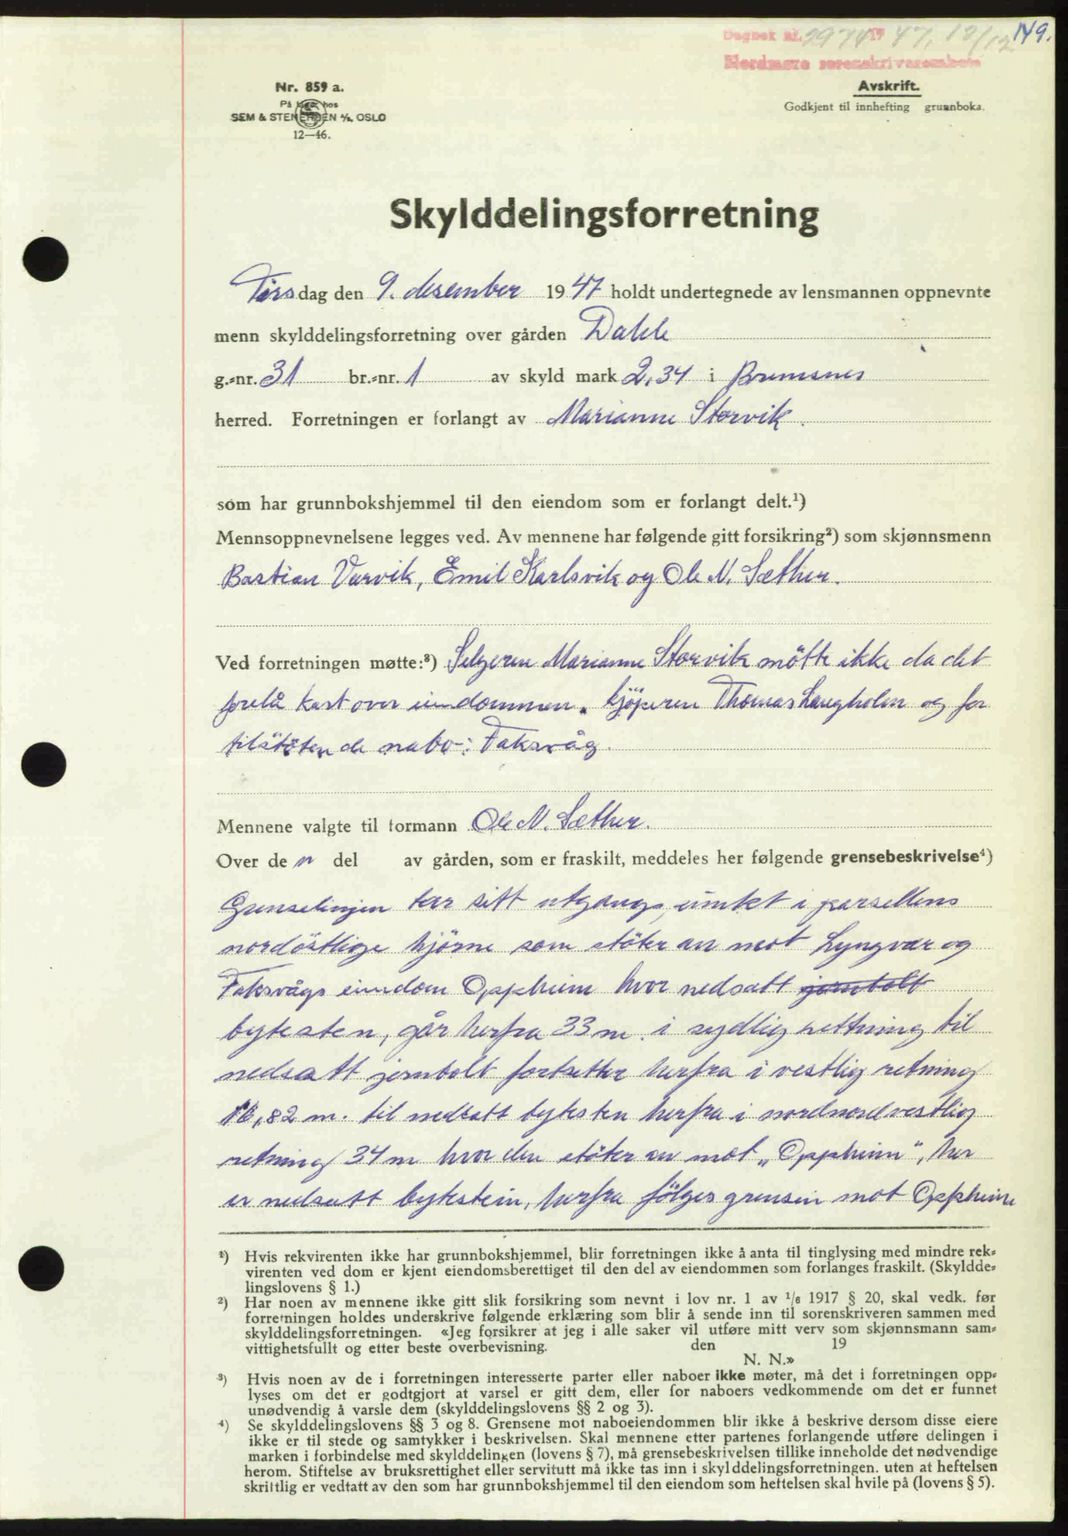 149.
Dagbok nr. 2974 19 47, 12/12
Nordmøre sorenskriverembete
Nr. 859 a.
På lager hos
SEM & STENERSEN A/S, OSLO
12—46.
Avskrift.
Godkjent til innhefting grunnboka.
Skylddelingsforretning
Tirsdag den 9. desember 1947 holdt undertegnede av lensmannen oppnevnte
menn skylddelingsforretning over gården Dahle
g.-nr. 31 br.-nr. 1 av skyld mark 2,34 i Bremsnes
herred. Forretningen er forlangt av Marianne Storvik.
som har grunnbokshjemmel til den eiendom som er forlangt delt.¹)
Mennsoppnevnelsene legges ved. Av mennene har følgende gitt forsikring²) som skjønnsmenn
Bastian Varvik, Emil Karlsvik og Ole N. Sæther.
Ved forretningen møtte:³) Selgeren Marianne Storvik mötte ikke da det
forelå kart over eiendommen. Kjöperen Thomas Langholm og for
tilstötende nabo: Faksvåg.
Mennene valgte til formann Ole N. Sæther.
Over den del av gården, som er fraskilt, meddeles her følgende grensebeskrivelse⁴)
Grenselinjen tar sitt utgangspunkt i parsellens
nordöstlige hjörne som stöter an mot Lyngvær og
Faksvågs eiendom Oppheim hvor nedsatt jernbolt
bytesten, går herfra 33 m. i sydlig rettning til
nedsatt jernbolt fortsetter herfra i vestlig retning
16,82 m. til nedsatt bytesten herfra i nordnordvestlig
retning 34 m hvor den stöter an mot „Oppheim“, her
er nedsatt bytestein, herfra fölges grensen mot Oppheim
¹) Hvis rekvirenten ikke har grunnbokshjemmel, blir forretningen ikke å anta til tinglysing med mindre rek-
virenten ved dom er kjent eiendomsberettiget til den del av eiendommen som forlanges fraskilt. (Skyldde-
lingslovens § 1.)
²) Har noen av mennene ikke gitt slik forsikring som nevnt i lov nr. 1 av 1/6 1917 § 20, skal vedk. før
forretningen holdes underskrive følgende erklæring som blir å sende inn til sorenskriveren sammen med
skylddelingsforretningen. «Jeg forsikrer at jeg i alle saker vil utføre mitt verv som skjønnsmann sam-
vittighetsfullt og etter beste overbevisning. den 19
N. N.»
³) Hvis noen av de i forretningen interesserte parter eller naboer ikke møter, må det i forretningen opp-
lyses om det er godtgjort at varsel er gitt dem, eller for naboers vedkommende om det er funnet
unødvendig å varsle dem (skylddelingslovens §§ 2 og 3).
⁴) Se skylddelingslovens §§ 3 og 8. Grensene mot naboeiendommen blir ikke å beskrive dersom disse eiere
ikke er til stede og samtykker i beskrivelsen. Skal mennene etter partenes forlangende utføre delingen i
marken i forbindelse med skylddelingen (lovens § 7), må grensebeskrivelsen tillike inneholde det nødvendige
herom. Stiftelse av bruksrettighet eller servitutt må ikke tas inn i skylddelingsforretningen, uten at heftelsen
skriftlig er vedtatt av den som har grunnbokshjemmel til den eiendom som heftelsen skal hvile på (lovens § 5).